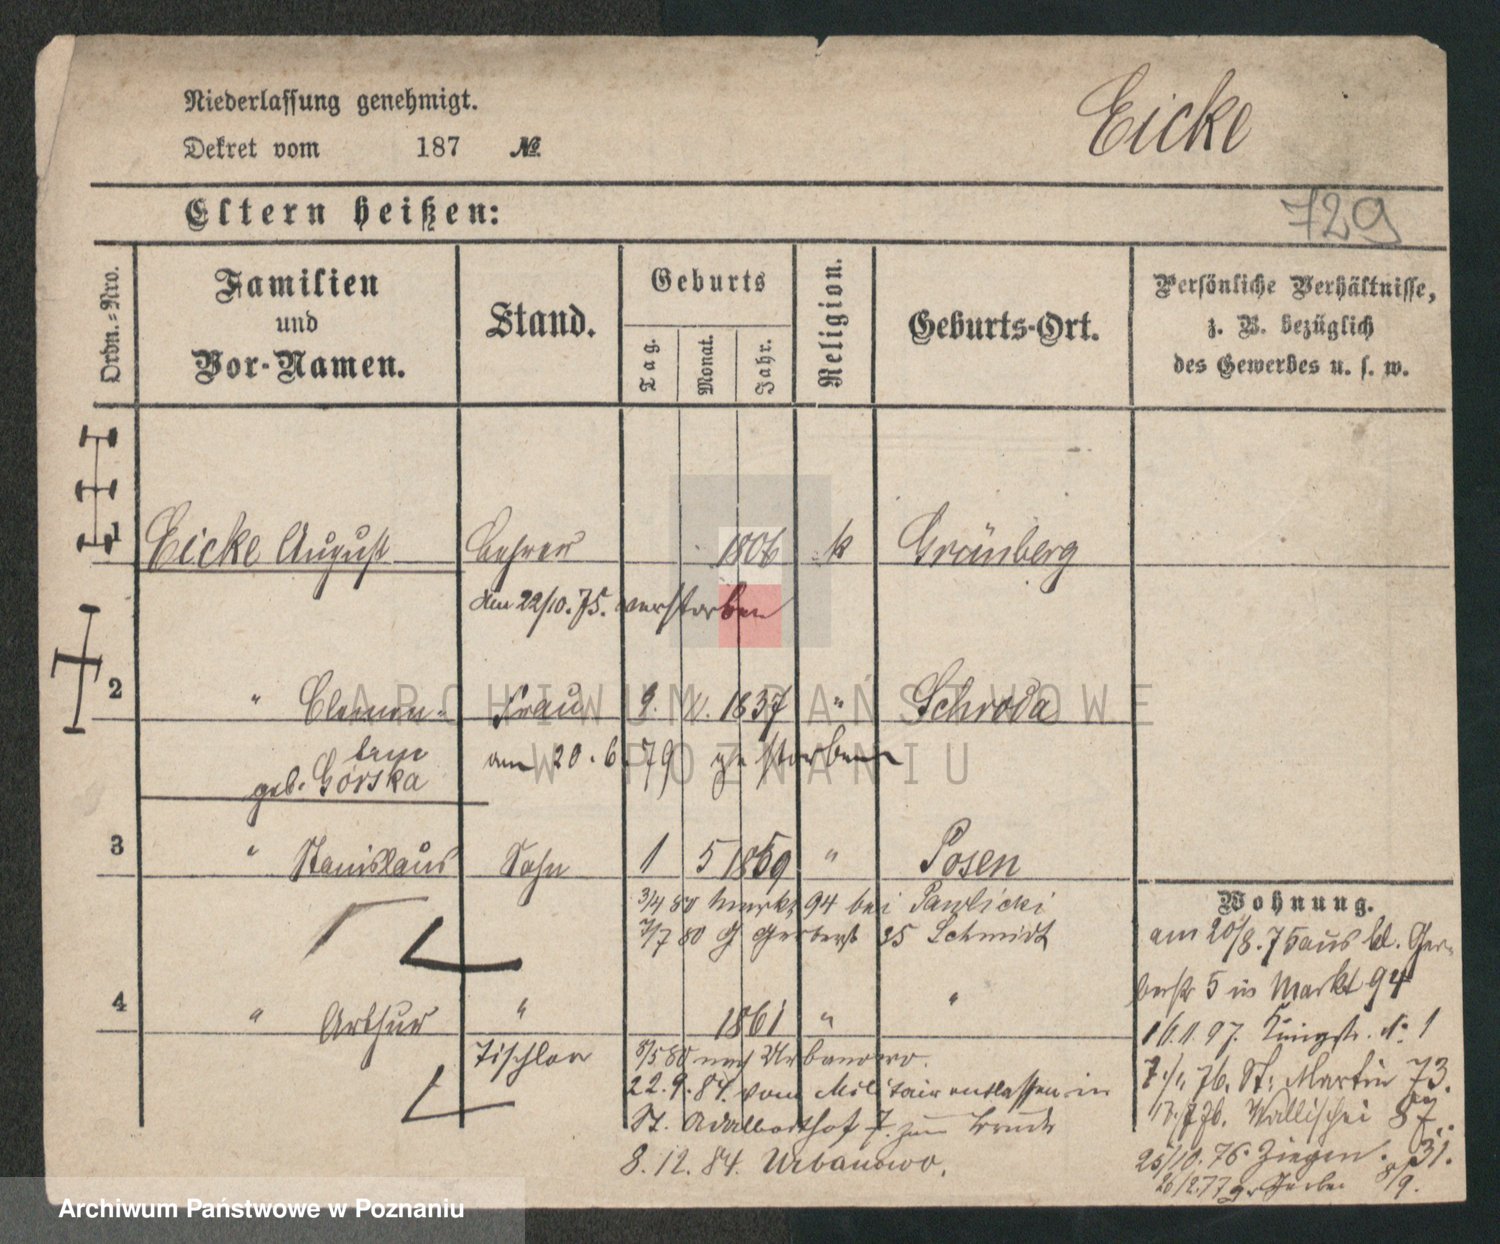 Niederlassung genehmigt.
Eicke
Dekret vom 187 №
Eltern heißen:
729
Ordn.-Nro.
Familien und Vor-Namen.
Stand.
Geburts
Tag.
Monat.
Jahr.
Religion.
Geburts-Ort.
Persönliche Verhältnisse,
z. B. bezüglich
des Gewerbes u. s. w.
1 Eicke August Lehrer 1806 k Grünberg
am 22/10.75. verstorben
2 " Clemen- Frau 9. 1837 " Schroda
tine am 20.6 79 gestorben
geb. Górska
3 " Stanislaus Sohn 1 5 1859 " Posen
3/4 80 Markt 94 bei Pawlicki
7/7 80 G Gerberst 35 Schmidt
4 " Arthur " 1861 " "
Tischler 8/5 80 nach Urbanowo.
22.9.84. vom Militair entlassen in
St. Adalberthof 7. zum Bruder
8.12.84. Urbanowo.
Wohnung.
am 20/8.75 aus kl. Ger-
berstr 5 in Markt 94
Königstr. No 1
76. St. Martin 73.
Wallischei 87.
25/10.76 Ziegen. 31.
26/2.77 gr Gerber 8/9.
ARCHIWUM PAŃSTWOWE
W POZNANIU
Archiwum Państwowe w Poznaniu